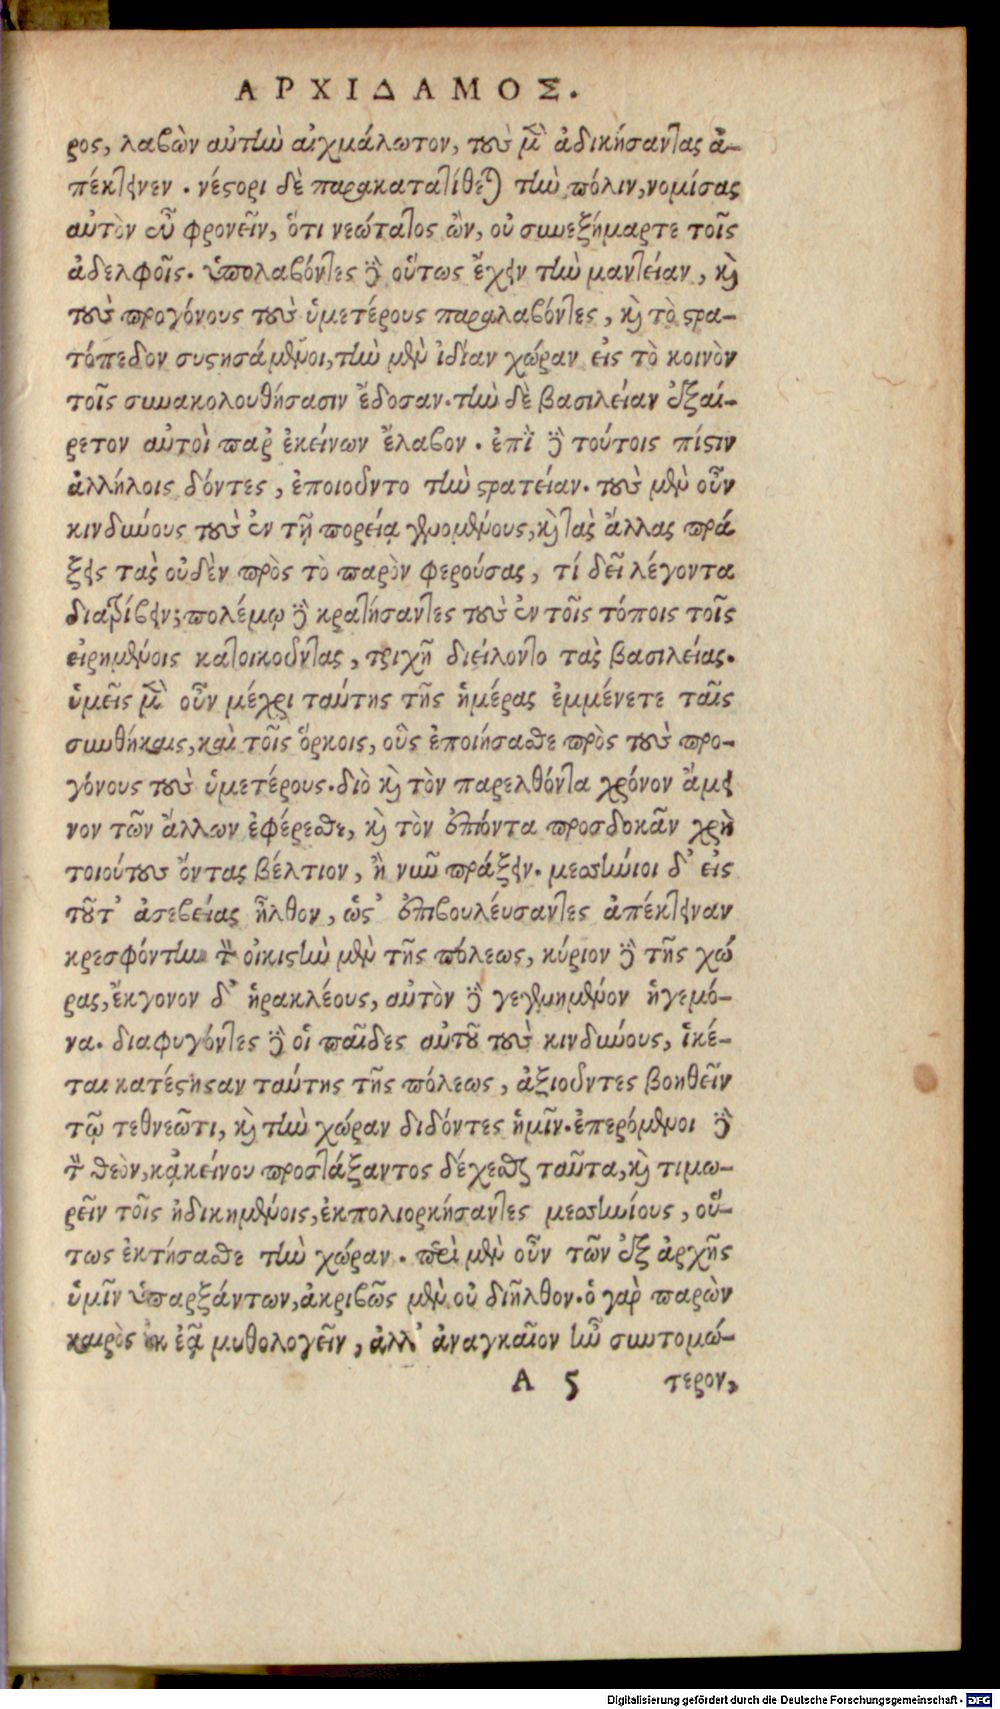 ΑΡΧΙΔΑΜΟΣ.
ρος, λαβὼν αὐτὴν αἰχμάλωτον, τοὺς μὲν ἀδικήσαντας ἀ-
πέκτεινεν. νέστορι δὲ παρακατατίθεται τὴν πόλιν, νομίσας
αὐτὸν εὖ φρονεῖν, ὅτι νεώτατος ὢν, οὐ συνεξήμαρτε τοῖς
ἀδελφοῖς. ὑπολαβόντες δὲ οὕτως ἔχειν τὴν μαντείαν, καὶ
τοὺς προγόνους τοὺς ὑμετέρους παραλαβόντες, καὶ τὸ στρα-
τόπεδον συστησάμενοι, τὴν μὲν ἰδίαν χώραν εἰς τὸ κοινὸν
τοῖς συνακολουθήσασιν ἔδοσαν. τὴν δὲ βασιλείαν ἐξαί-
ρετον αὐτοὶ παρ ἐκείνων ἔλαβον. ἐπὶ δὲ τούτοις πίστιν
ἀλλήλοις δόντες, ἐποιοῦντο τὴν στρατείαν. τοὺς μὲν οὖν
κινδύνους τοὺς ἐν τῇ πορείᾳ γενομένους, καὶ τὰς ἄλλας πρά
ξεις τὰς οὐδὲν πρὸς τὸ παρὸν φερούσας, τί δεῖ λέγοντα
διατρίβειν; πολέμῳ δὲ κρατήσαντες τοὺς ἐν τοῖς τόποις τοῖς
εἰρημένοις κατοικοῦντας, τριχῇ διείλοντο τὰς βασιλείας.
ὑμεῖς μὲν οὖν μέχρι ταύτης τῆς ἡμέρας ἐμμένετε ταῖς
συνθήκαις, καὶ τοῖς ὅρκοις, οὓς ἐποιήσασθε πρὸς τοὺς προ-
γόνους τοὺς ὑμετέρους. διὸ καὶ τὸν παρελθόντα χρόνον ἄμει
νον τῶν ἄλλων ἐφέρεσθε, καὶ τὸν ἐπιόντα προσδοκᾶν χρὴ
τοιούτους ὄντας βέλτιον, ἢ νῦν πράξειν. μεσσήνιοι δ' εἰς
τοῦτ' ἀσεβείας ἦλθον, ὥς' ἐπιβουλεύσαντες ἀπέκτειναν
κρεσφόντην τὸν οἰκιστὴν μὲν τῆς πόλεως, κύριον δὲ τῆς χώ
ρας, ἔκγονον δ' ἡρακλέους, αὐτὸν δὲ γεγενημένον ἡγεμό-
να. διαφυγόντες δὲ οἱ παῖδες αὐτοῦ τοὺς κινδύνους, ἱκέ-
ται κατέστησαν ταύτης τῆς πόλεως, ἀξιοῦντες βοηθεῖν
τῷ τεθνεῶτι, καὶ τὴν χώραν διδόντες ἡμῖν. ἐπερόμενοι δὲ
τὸν θεὸν, κἀκείνου προστάξαντος δέχεσθαι ταῦτα, καὶ τιμω-
ρεῖν τοῖς ἠδικημένοις, ἐκπολιορκήσαντες μεσσηνίους, οὕ-
τως ἐκτήσασθε τὴν χώραν. περὶ μὲν οὖν τῶν ἐξ ἀρχῆς
ὑμῖν ὑπαρξάντων, ἀκριβῶς μὲν οὐ διῆλθον. ὁ γὰρ παρὼν
καιρὸς οὐκ ἐᾷ μυθολογεῖν, ἀλλ' ἀναγκαῖον ἦν συντομώ-
Α 5 τερον,
Digitalisierung gefördert durch die Deutsche Forschungsgemeinschaft - DFG